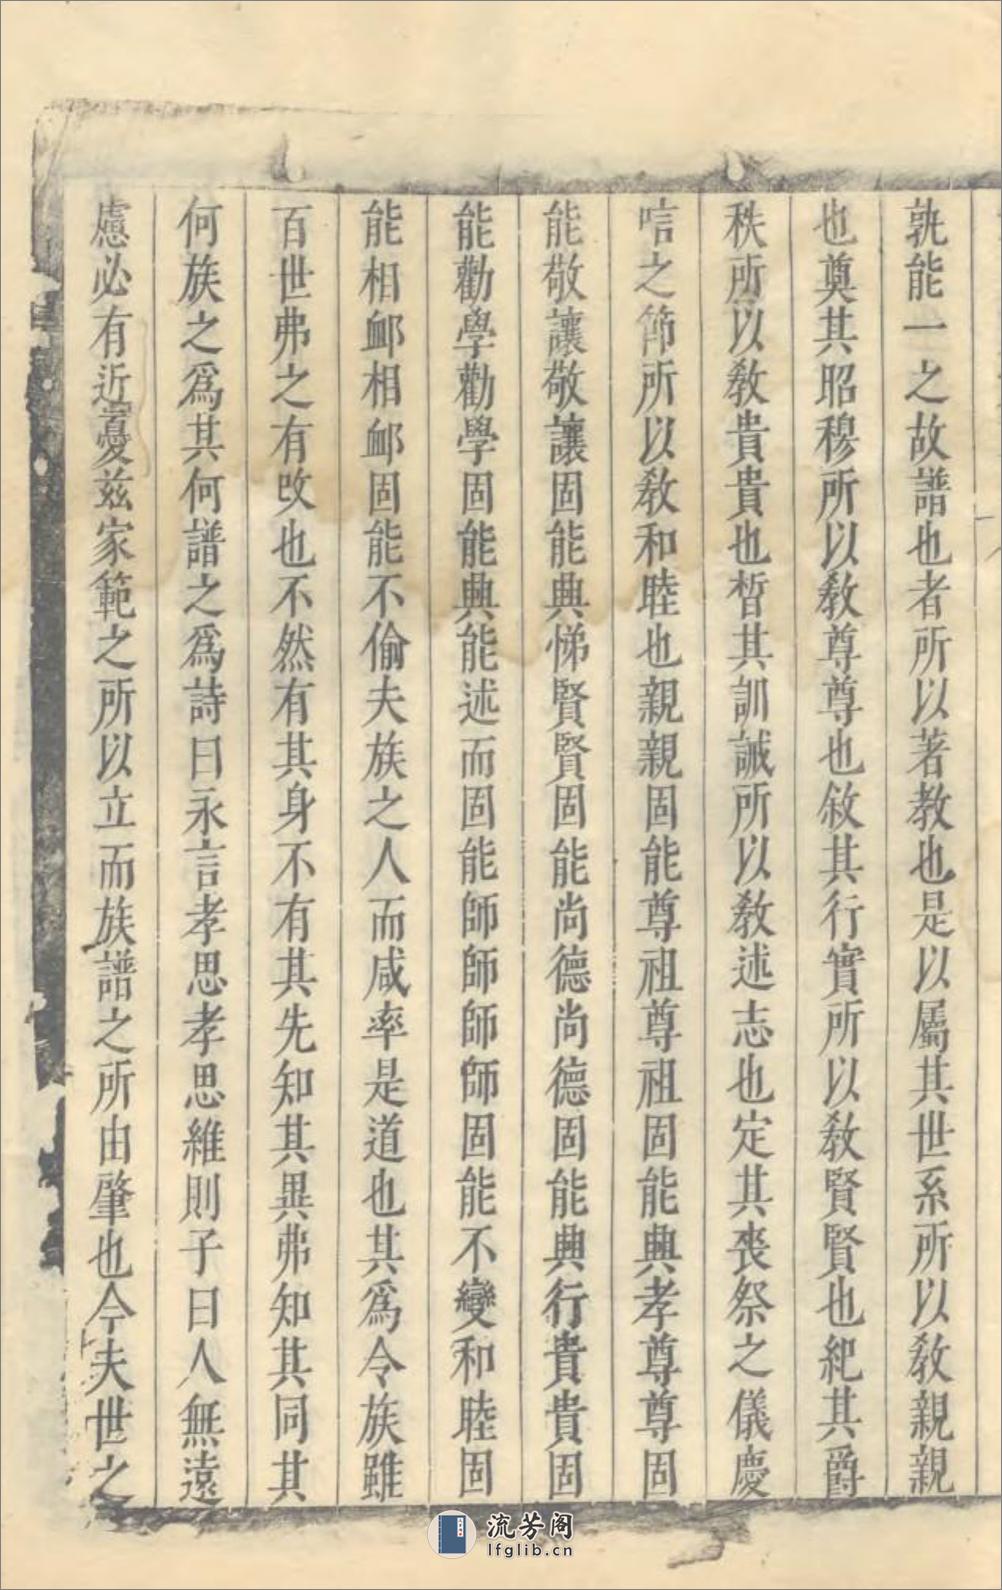 孰能一之故譜也者所以著教也是以屬其世系所以敎親親
也奠其昭穆所以敎尊尊也敘其行實所以敎賢賢也紀其爵
秩所以敎貴貴也晳其訓誡所以敎述志也定其喪祭之儀慶
唁之節所以敎和睦也親親固能尊祖尊祖固能興孝尊尊固
能敬讓敬讓固能典悌賢賢固能尚德尚德固能興行貴貴固
能勸學勸學固能興能述而固能師師師師固能不變和睦固
能相卹相卹固能不偷夫族之人而咸率是道也其爲令族雖
百世弗之有改也不然有其身不有其先知其異弗知其同其
何族之爲其何譜之爲詩曰永言孝思孝思維則子曰人無遠
慮必有近憂兹家範之所以立而族譜之所由肇也今夫世之
流芳阁
lfglib.cn